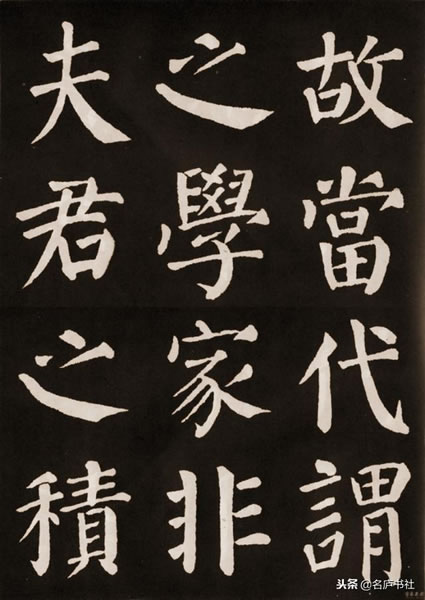 故當代謂
之學家非
夫君之積
头条@名庐书社